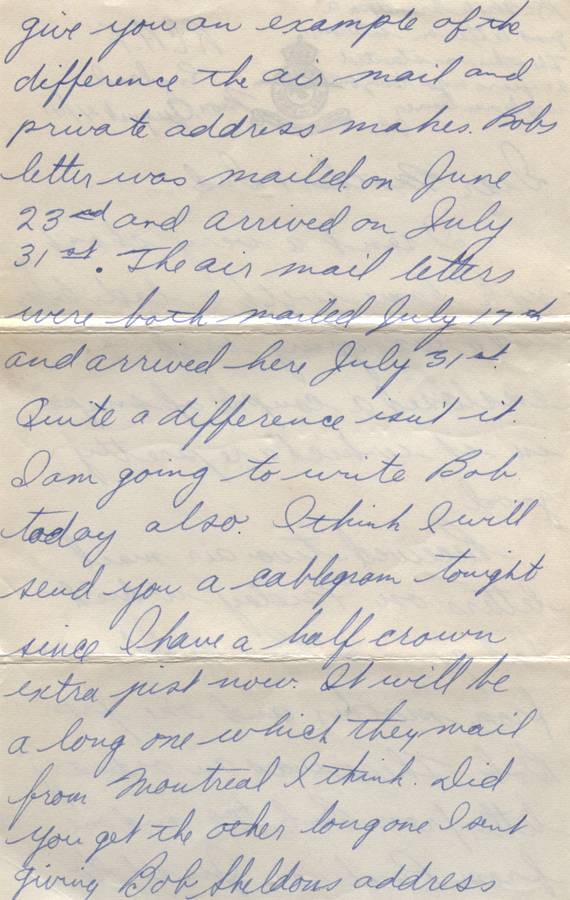 give you an example of the
difference the air mail and
private address makes. Bobs
letter was mailed on June
23rd and arrived on July
31st. The air mail letters
were both mailed July 17th
and arrived here July 31st.
Quite a difference isn't it.
I am going to write Bob
today also. I think I will
send you a cablegram tonight
since I have a half crown
extra just now. It will be
a long one which they mail
from Montreal I think. Did
you get the other long one I sent
giving Bob Sheldons address